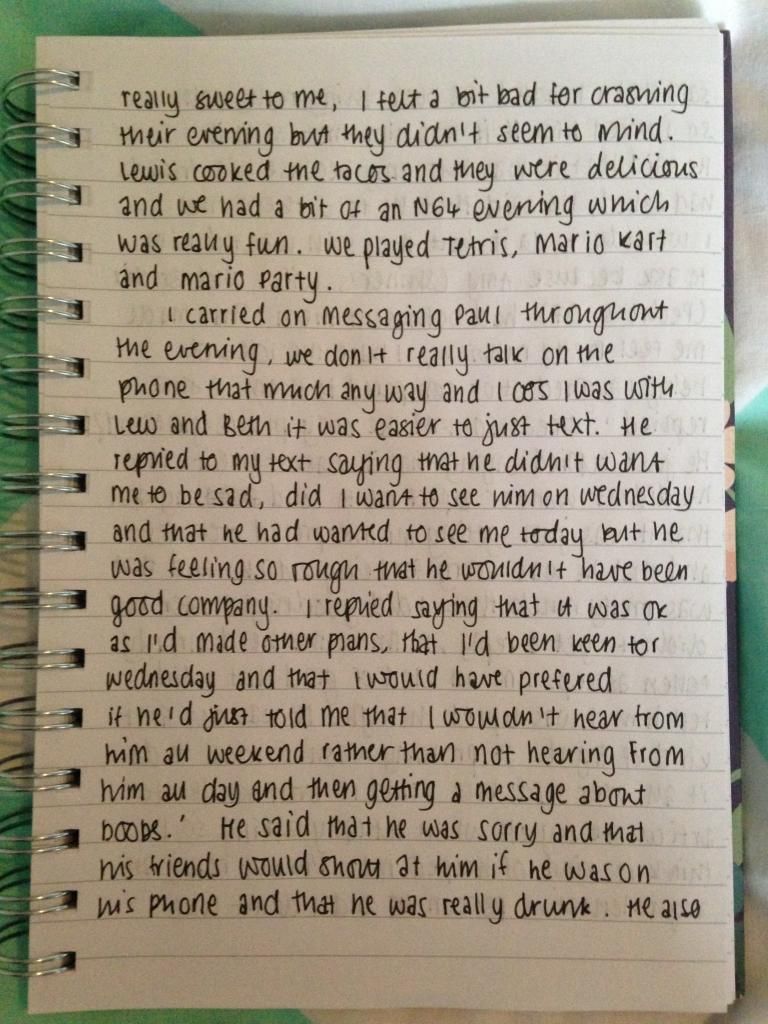 really sweet to me, I felt a bit bad for crashing
their evening but they didn't seem to mind.
Lewis cooked the tacos and they were delicious
and we had a bit of an N64 evening which
was really fun. We played Tetris, Mario Kart
and Mario Party.
I carried on messaging Paul throughout
the evening, we don't really talk on the
phone that much any way and I cos I was with
Lew and Beth it was easier to just text. He
replied to my text saying that he didn't want
me to be sad, did I want to see him on Wednesday
and that he had wanted to see me today but he
was feeling so rough that he wouldn't have been
good company. I replied saying that it was ok
as I'd made other plans, that I'd been keen for
Wednesday and that I would have prefered
if he'd just told me that I wouldn't hear from
him all weekend rather than not hearing from
him all day and then getting a message about
boobs.' He said that he was sorry and that
his friends would shout at him if he was on
his phone and that he was really drunk. He also